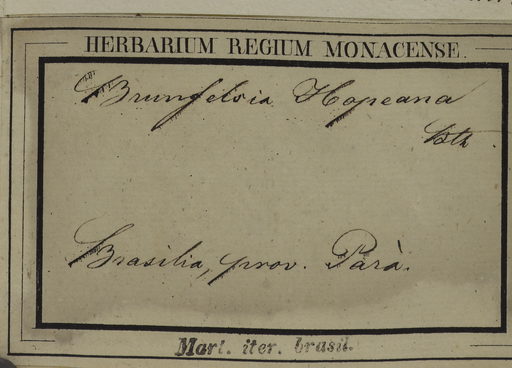 HERBARIUM REGIUM MONACENSE.
Brunfelsia Hopeana
Bth
Brasilia, prov. Parà.
Mart. iter. brasil.